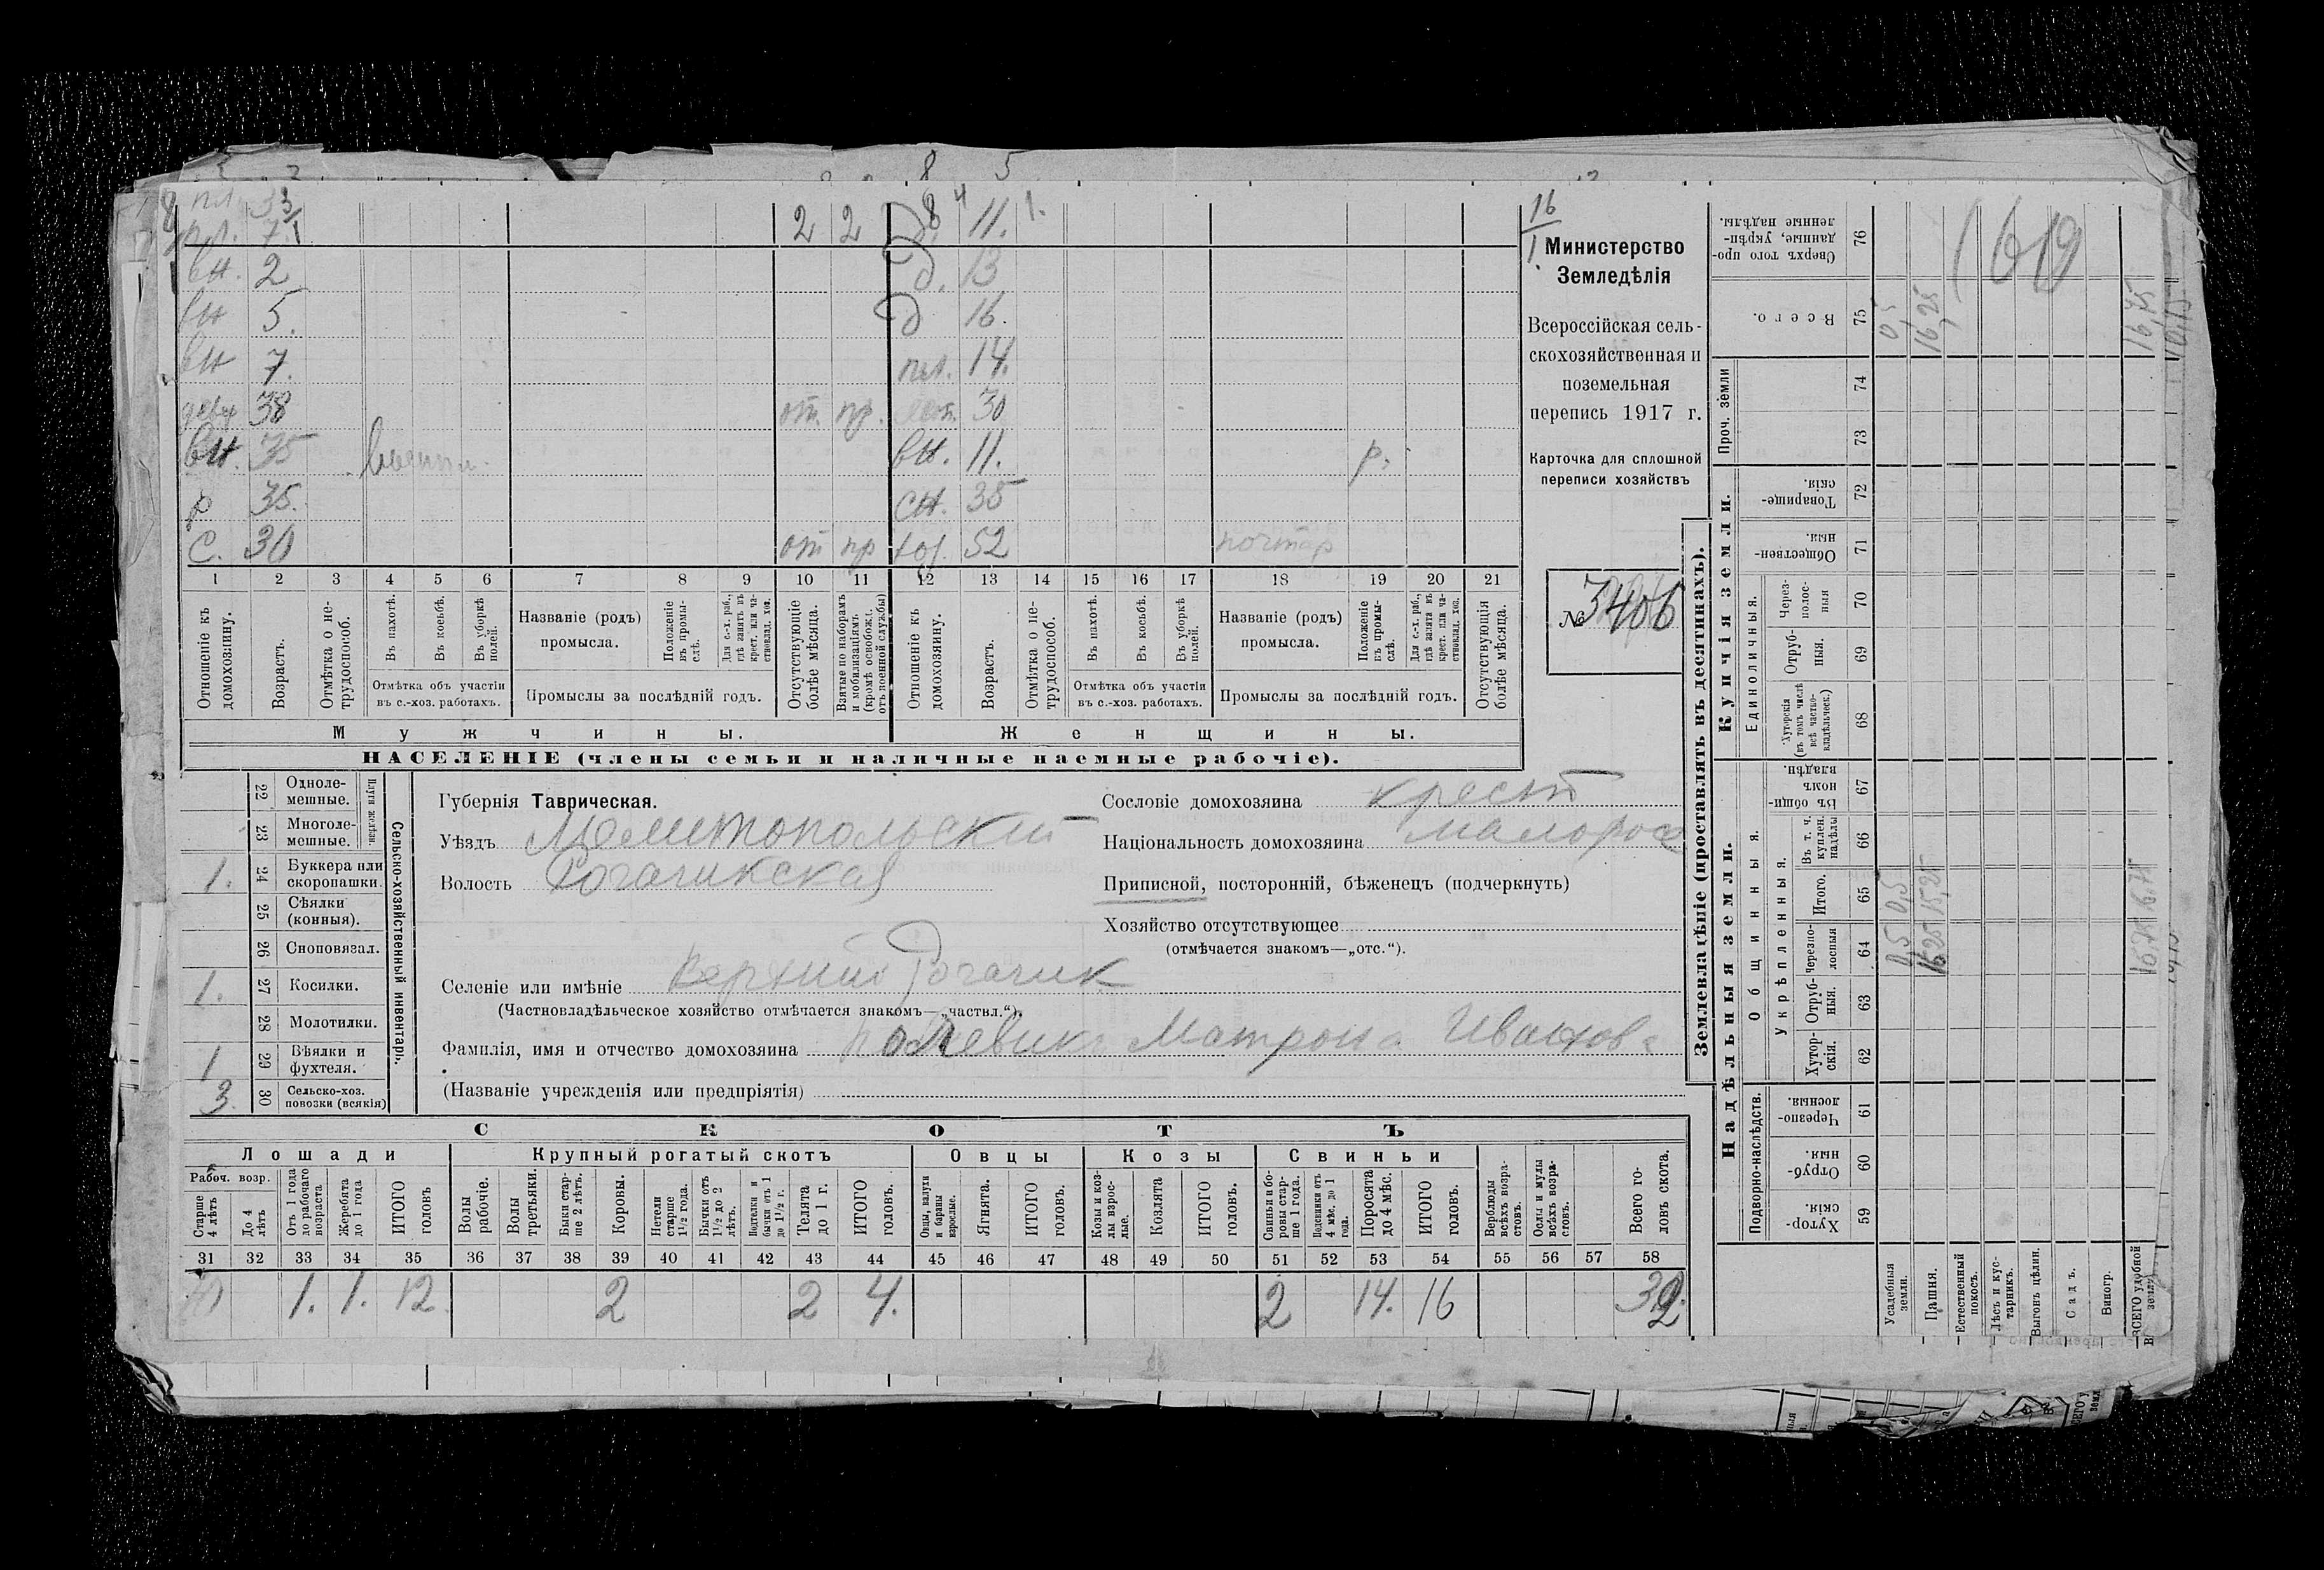 8 5
пл. 33
8 4 11. 1.
пл. 7. 1 2 2
вн. 2 д. 13
вн 5. д 16.
вн 7. пл. 14.
38 от. пр. 30
вн. 35 вн. 11. р.
р 35. сн. 35
с. 30 от пр 52
1 2 3 4 5 6 7 8 9 10 11 12 13 14 15 16 17 18 19 20 21
Отношеніе къ домохозяину.
Возрастъ.
Отмѣтка о не-трудоспособ.
Въ пахотѣ.
Въ косьбѣ.
Въ уборкѣ полей.
Отмѣтка объ участіи
въ с.-хоз. работахъ.
Названіе (родъ)
промысла.
Положеніе въ промы-слѣ.
Для с.-х. раб., гдѣ занятъ въ крест. или ча-стновлад. хоз.
Промыслы за послѣдній годъ.
Отсутствующіе болѣе мѣсяца.
Взятые по наборамъ и мобилизаціямъ (кромѣ освобожд. отъ военной службы)
Отношеніе къ домохозяину.
Возрастъ.
Отмѣтка о не-трудоспособ.
Въ пахотѣ.
Въ косьбѣ.
Въ уборкѣ полей.
Отмѣтка объ участіи
въ с.-хоз. работахъ.
Названіе (родъ)
промысла.
Положеніе въ промы-слѣ.
Для с.-х. раб., гдѣ занята въ крест. или ча-стновлад. хоз.
Промыслы за послѣдній годъ.
Отсутствующія болѣе мѣсяца.
Мужчины. Женщины.
НАСЕЛЕНІЕ (члены семьи и наличные наемные рабочіе).
16
1
Министерство
Земледѣлія
Всероссійская сель-
скохозяйственная и
поземельная
перепись 1917 г.
Карточка для сплошной
переписи хозяйствъ
№ 3406
22 Одноле-мешные.
23 Многоле-мешные.
Плуги желѣзн.
1. 24 Буккера или скоропашки.
25 Сѣялки (конныя).
26 Сноповязал.
1. 27 Косилки.
28 Молотилки.
1 29 Вѣялки и фухтеля.
3. 30 Сельско-хоз. повозки (всякія)
Сельско-хозяйственный инвентарь.
Губернія Таврическая.
Уѣздъ Мелитопольский
Волость Рогачикская
Селеніе или имѣніе Верхний Рогачик
(Частновладѣльческое хозяйство отмѣчается знакомъ—„частвл.“).
Фамилія, имя и отчество домохозяина Матрона Иванов
(Названіе учрежденія или предпріятія)
Сословіе домохозяина крест
Національность домохозяина малорос
Приписной, посторонній, бѣженецъ (подчеркнуть)
Хозяйство отсутствующее
(отмѣчается знакомъ—„отс.“).
СКОТЪ
Лошади Крупный рогатый скотъ Овцы Козы Свиньи
Рабоч. возр.
Старше 4 лѣтъ
До 4 лѣтъ
Отъ 1 года до рабочаго возраста
Жеребята до 1 года
ИТОГО головъ
Волы рабочіе.
Волы третьяки.
Быки стар-ше 2 лѣтъ.
Коровы.
Нетели старше 1½ года.
Бычки отъ 1½ до 2 лѣтъ.
Подтелки и бычки отъ 1 до 1½ г.
Телята до 1 г.
ИТОГО головъ.
Овцы, валухи и бараны взрослые.
Ягнята.
ИТОГО головъ.
Козы и коз-лы взрос-лые.
Козлята
ИТОГО головъ.
Свиньи и бо-ровы стар-ше 1 года.
Подсвинки отъ 4 мѣс. до 1 года.
Поросята до 4 мѣс.
ИТОГО головъ.
Верблюды всѣхъ возра-стовъ.
Ослы и мулы всѣхъ возра-стовъ.
Всего го-ловъ скота.
31 32 33 34 35 36 37 38 39 40 41 42 43 44 45 46 47 48 49 50 51 52 53 54 55 56 57 58
10 1. 1. 12. 2 2 4. 2 14. 16 32.
Землевладѣніе (проставлять въ десятинахъ).
Надѣльныя земли. Купчія земли.
Подворно-наслѣдств.
Общинныя.
Укрѣпленныя.
Единоличныя.
Проч. земли
Хутор-скія. 59
Отруб-ныя. 60
Черезпо-лосныя. 61
Хутор-скія. 62
Отруб-ныя. 63
Черезпо-лосныя 64
Итого. 65
Въ т. ч. куплен. надѣлы 66
Въ общи-номъ владѣн. 67
Хуторскія (въ томъ числѣ всѣ частно-владѣльческ.) 68
Отруб-ныя. 69
Через-полос-ныя 70
Обществен-ныя. 71
Товарище-скія. 72
73
74
Всего. 75
Сверхъ того про-данные, укрѣп-ленные надѣлы. 76
Усадебныя земли. 0,5 0,5 0,5
Пашня. 16,25 15,25 16,25
Естественный покосъ.
Лѣсъ и кус-тарникъ.
Выгонъ цѣлин.
Садъ.
Виногр.
ВСЕГО удобной земли 16,75 16,75 16,75
1619